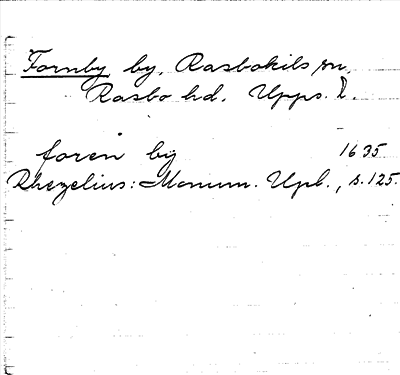 Fornby by, Rasbokils sn,
Rasbo hd. Upps. l.
foren by 1635
Rhezelius: Monum. Upl., s. 125.